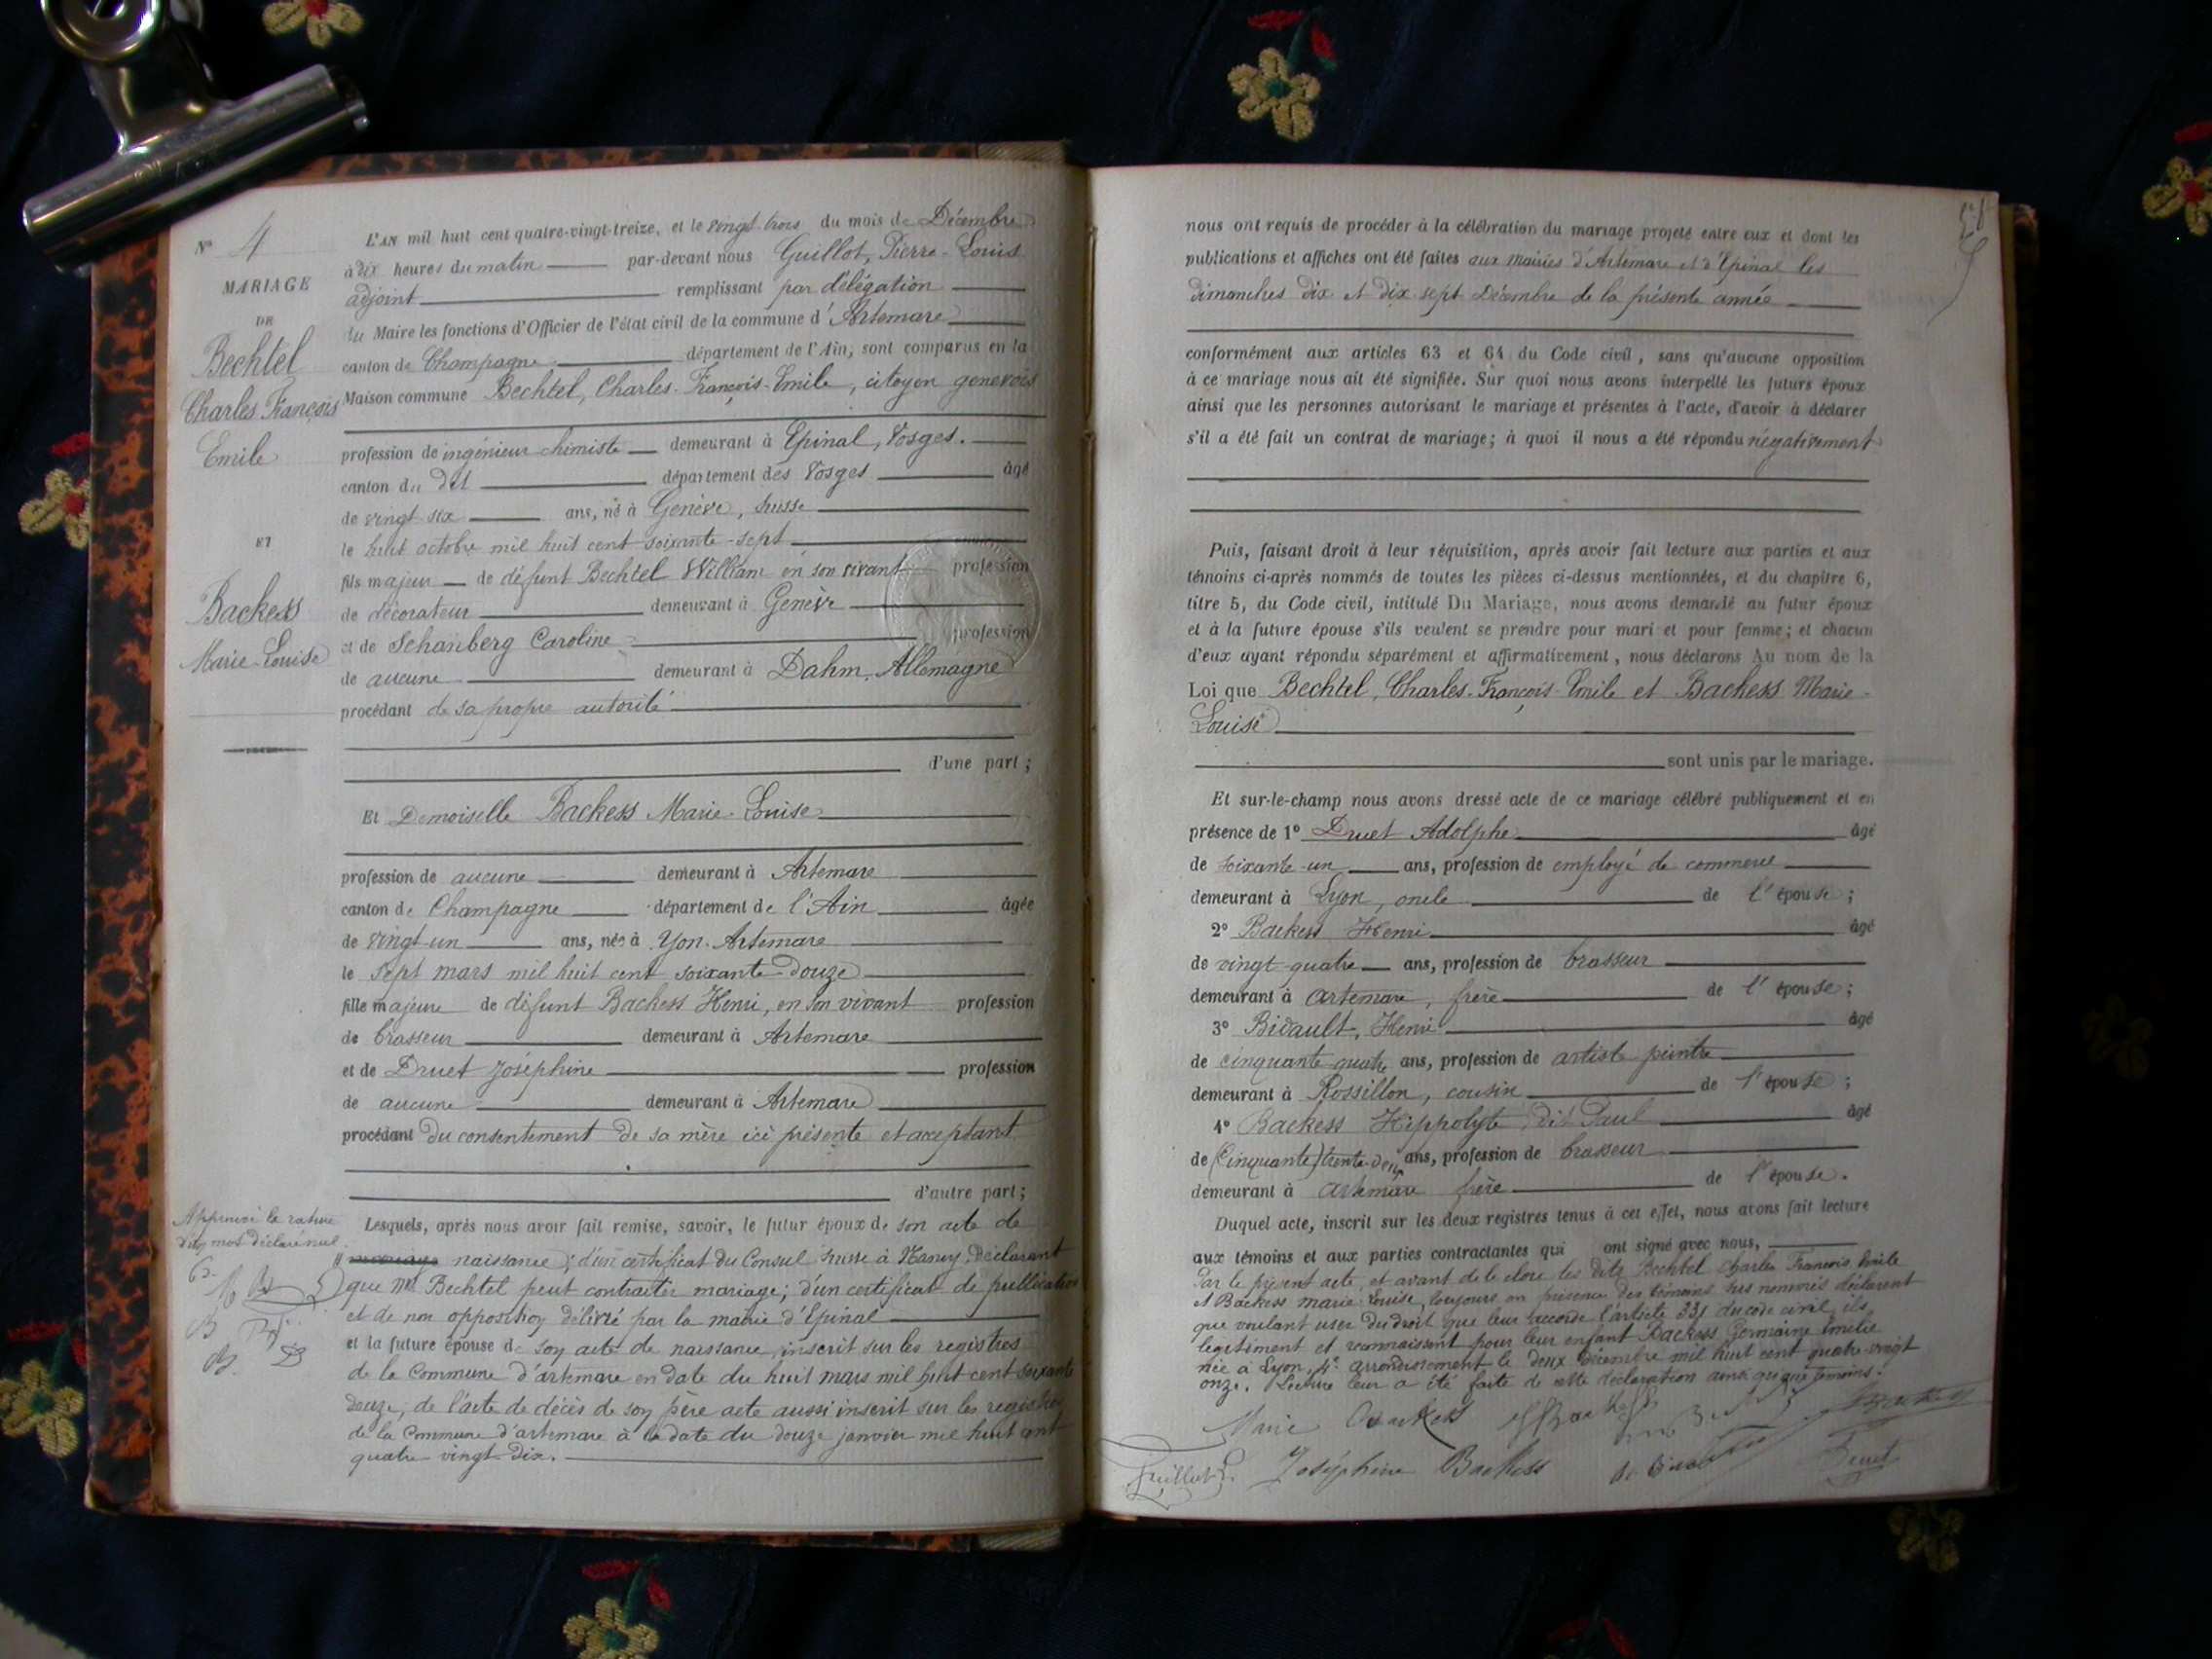 Nº 4
MARIAGE
DE
Bechtel
Charles François
Emile
ET
Backess
Marie-Louise
L'AN mil huit cent quatre-vingt-treize, et le vingt trois du mois de Décembre
à dix heures du matin par-devant nous Guillot, Pierre-Louis
adjoint remplissant par délégation
du Maire les fonctions d'Officier de l'état civil de la commune d'Artemare
canton de Champagne département de l'Ain, sont comparus en la
Maison commune Bechtel, Charles-François-Emile, citoyen genevois
profession de ingénieur chimiste demeurant à Epinal, Vosges.
canton du dit département des Vosges âgé
de vingt six ans, né à Genève, Suisse
le huit octobre mil huit cent soixante-sept
fils majeur de défunt Bechtel William en son vivant profession
de décorateur demeurant à Genève
et de Caroline profession
de aucune demeurant à Dahm, Allemagne
procédant de sa propre autorité
d'une part;
Et Demoiselle Backess Marie-Louise
profession de aucune demeurant à Artemare
canton de Champagne département de l'Ain âgée
de vingt-un ans, née à Yon-Artemare
le sept mars mil huit cent soixante-douze
fille majeure de défunt Backess Henri, en son vivant profession
de brasseur demeurant à Artemare
et de Druet Joséphine profession
de aucune demeurant à Artemare
procédant du consentement de sa mère ici présente et acceptant
d'autre part;
Approuvé la rature
d'un mot déclaré nul
Lesquels, après nous avoir fait remise, savoir, le futur époux de son acte de
naissance; d'un certificat du Consul Suisse à Nancy, déclarant
que Mr Bechtel peut contracter mariage; d'un certificat de publication
et de non opposition délivré par la mairie d'Epinal
et la future épouse de son acte de naissance, inscrit sur les registres
de la Commune d'artemare en date du huit mars mil huit cent soixante
douze, de l'acte de décès de son père acte aussi inscrit sur les registres
de la Commune d'artemare à la date du douze janvier mil huit cent
quatre vingt-dix.
nous ont requis de procéder à la célébration du mariage projeté entre eux et dont les
publications et affiches ont été faites aux mairies d'Artemare et d'Epinal les
dimanches dix et dix sept Décembre de la présente année
conformément aux articles 63 et 64 du Code civil, sans qu'aucune opposition
à ce mariage nous ait été signifiée. Sur quoi nous avons interpellé les futurs époux
ainsi que les personnes autorisant le mariage et présentes à l'acte, d'avoir à déclarer
s'il a été fait un contrat de mariage; à quoi il nous a été répondu négativement
Puis, faisant droit à leur réquisition, après avoir fait lecture aux parties et aux
témoins ci-après nommés de toutes les pièces ci-dessus mentionnées, et du chapitre 6,
titre 5, du Code civil, intitulé Du Mariage, nous avons demandé au futur époux
et à la future épouse s'ils veulent se prendre pour mari et pour femme; et chacun
d'eux ayant répondu séparément et affirmativement, nous déclarons Au nom de la
Loi que Bechtel, Charles-François-Emile et Backess Marie-
Louise
sont unis par le mariage.
Et sur-le-champ nous avons dressé acte de ce mariage célébré publiquement et en
présence de 1º Druet Adolphe âgé
de soixante-un ans, profession de employé de commerce
demeurant à Lyon, oncle de l'épouse;
2º Backess Henri âgé
de vingt-quatre ans, profession de brasseur
demeurant à artemare, frère de l'épouse;
3º Bidault, Henri âgé
de cinquante quatre ans, profession de artiste peintre
demeurant à Rossillon, cousin de l'épouse;
4º Backess Hippolyte dit Paul âgé
de (Cinquante) trente-deux ans, profession de brasseur
demeurant à artemare frère de l'épouse.
Duquel acte, inscrit sur les deux registres tenus à cet effet, nous avons fait lecture
aux témoins et aux parties contractantes qui ont signé avec nous,
Par le présent acte, et avant de le clore les dits Bechtel Charles François Emile
et Backess marie-Louise, toujours en présence des témoins sus nommés déclarent
que voulant user du droit que leur accorde l'article 331 du code civil, ils
légitiment et reconnaissent pour leur enfant Backess Germaine Emilie
née à Lyon, 4e arrondissement le deux décembre mil huit cent quatre-vingt
onze. Lecture leur a été faite de cette déclaration ainsi qu'aux témoins.
Marie Backess
Guillot L. Joséphine Backess Druet